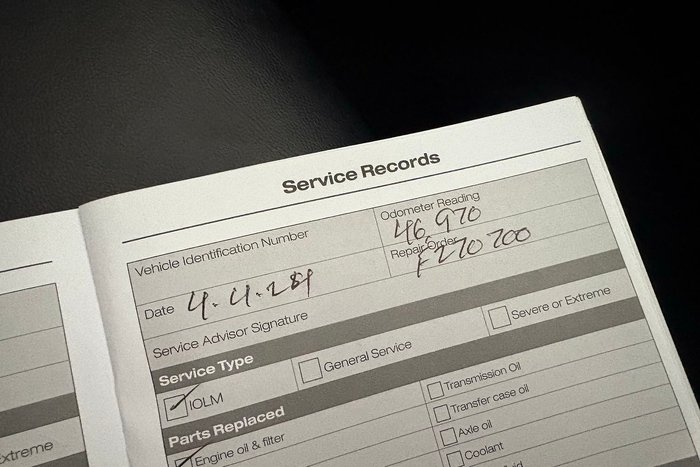 Service Records
Vehicle Identification Number
Odometer Reading
46,970
Date 4.4.24
Repair Order
F270700
Service Advisor Signature
Service Type
IOLM
General Service
Severe or Extreme
Parts Replaced
Engine oil & filter
Transmission Oil
Transfer case oil
Axle oil
Coolant
xtreme